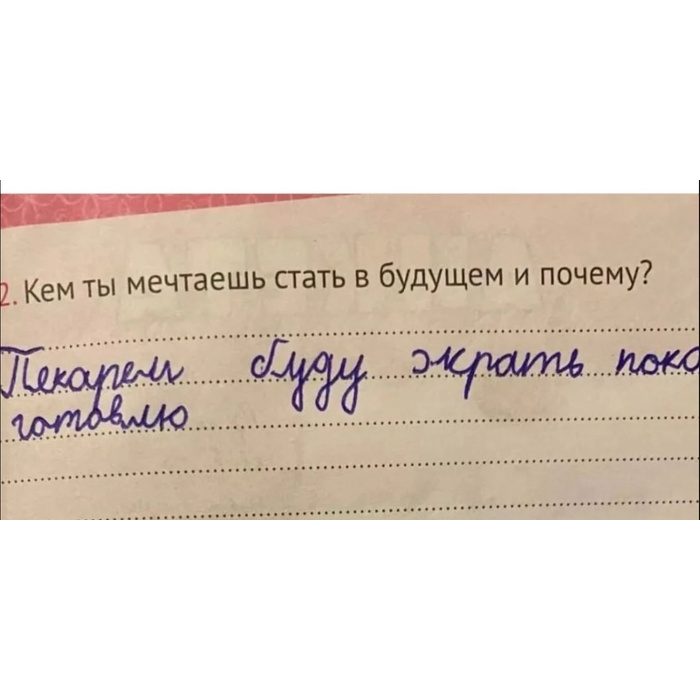 2. Кем ты мечтаешь стать в будущем и почему?
Пекарем буду жрать пока
готовлю